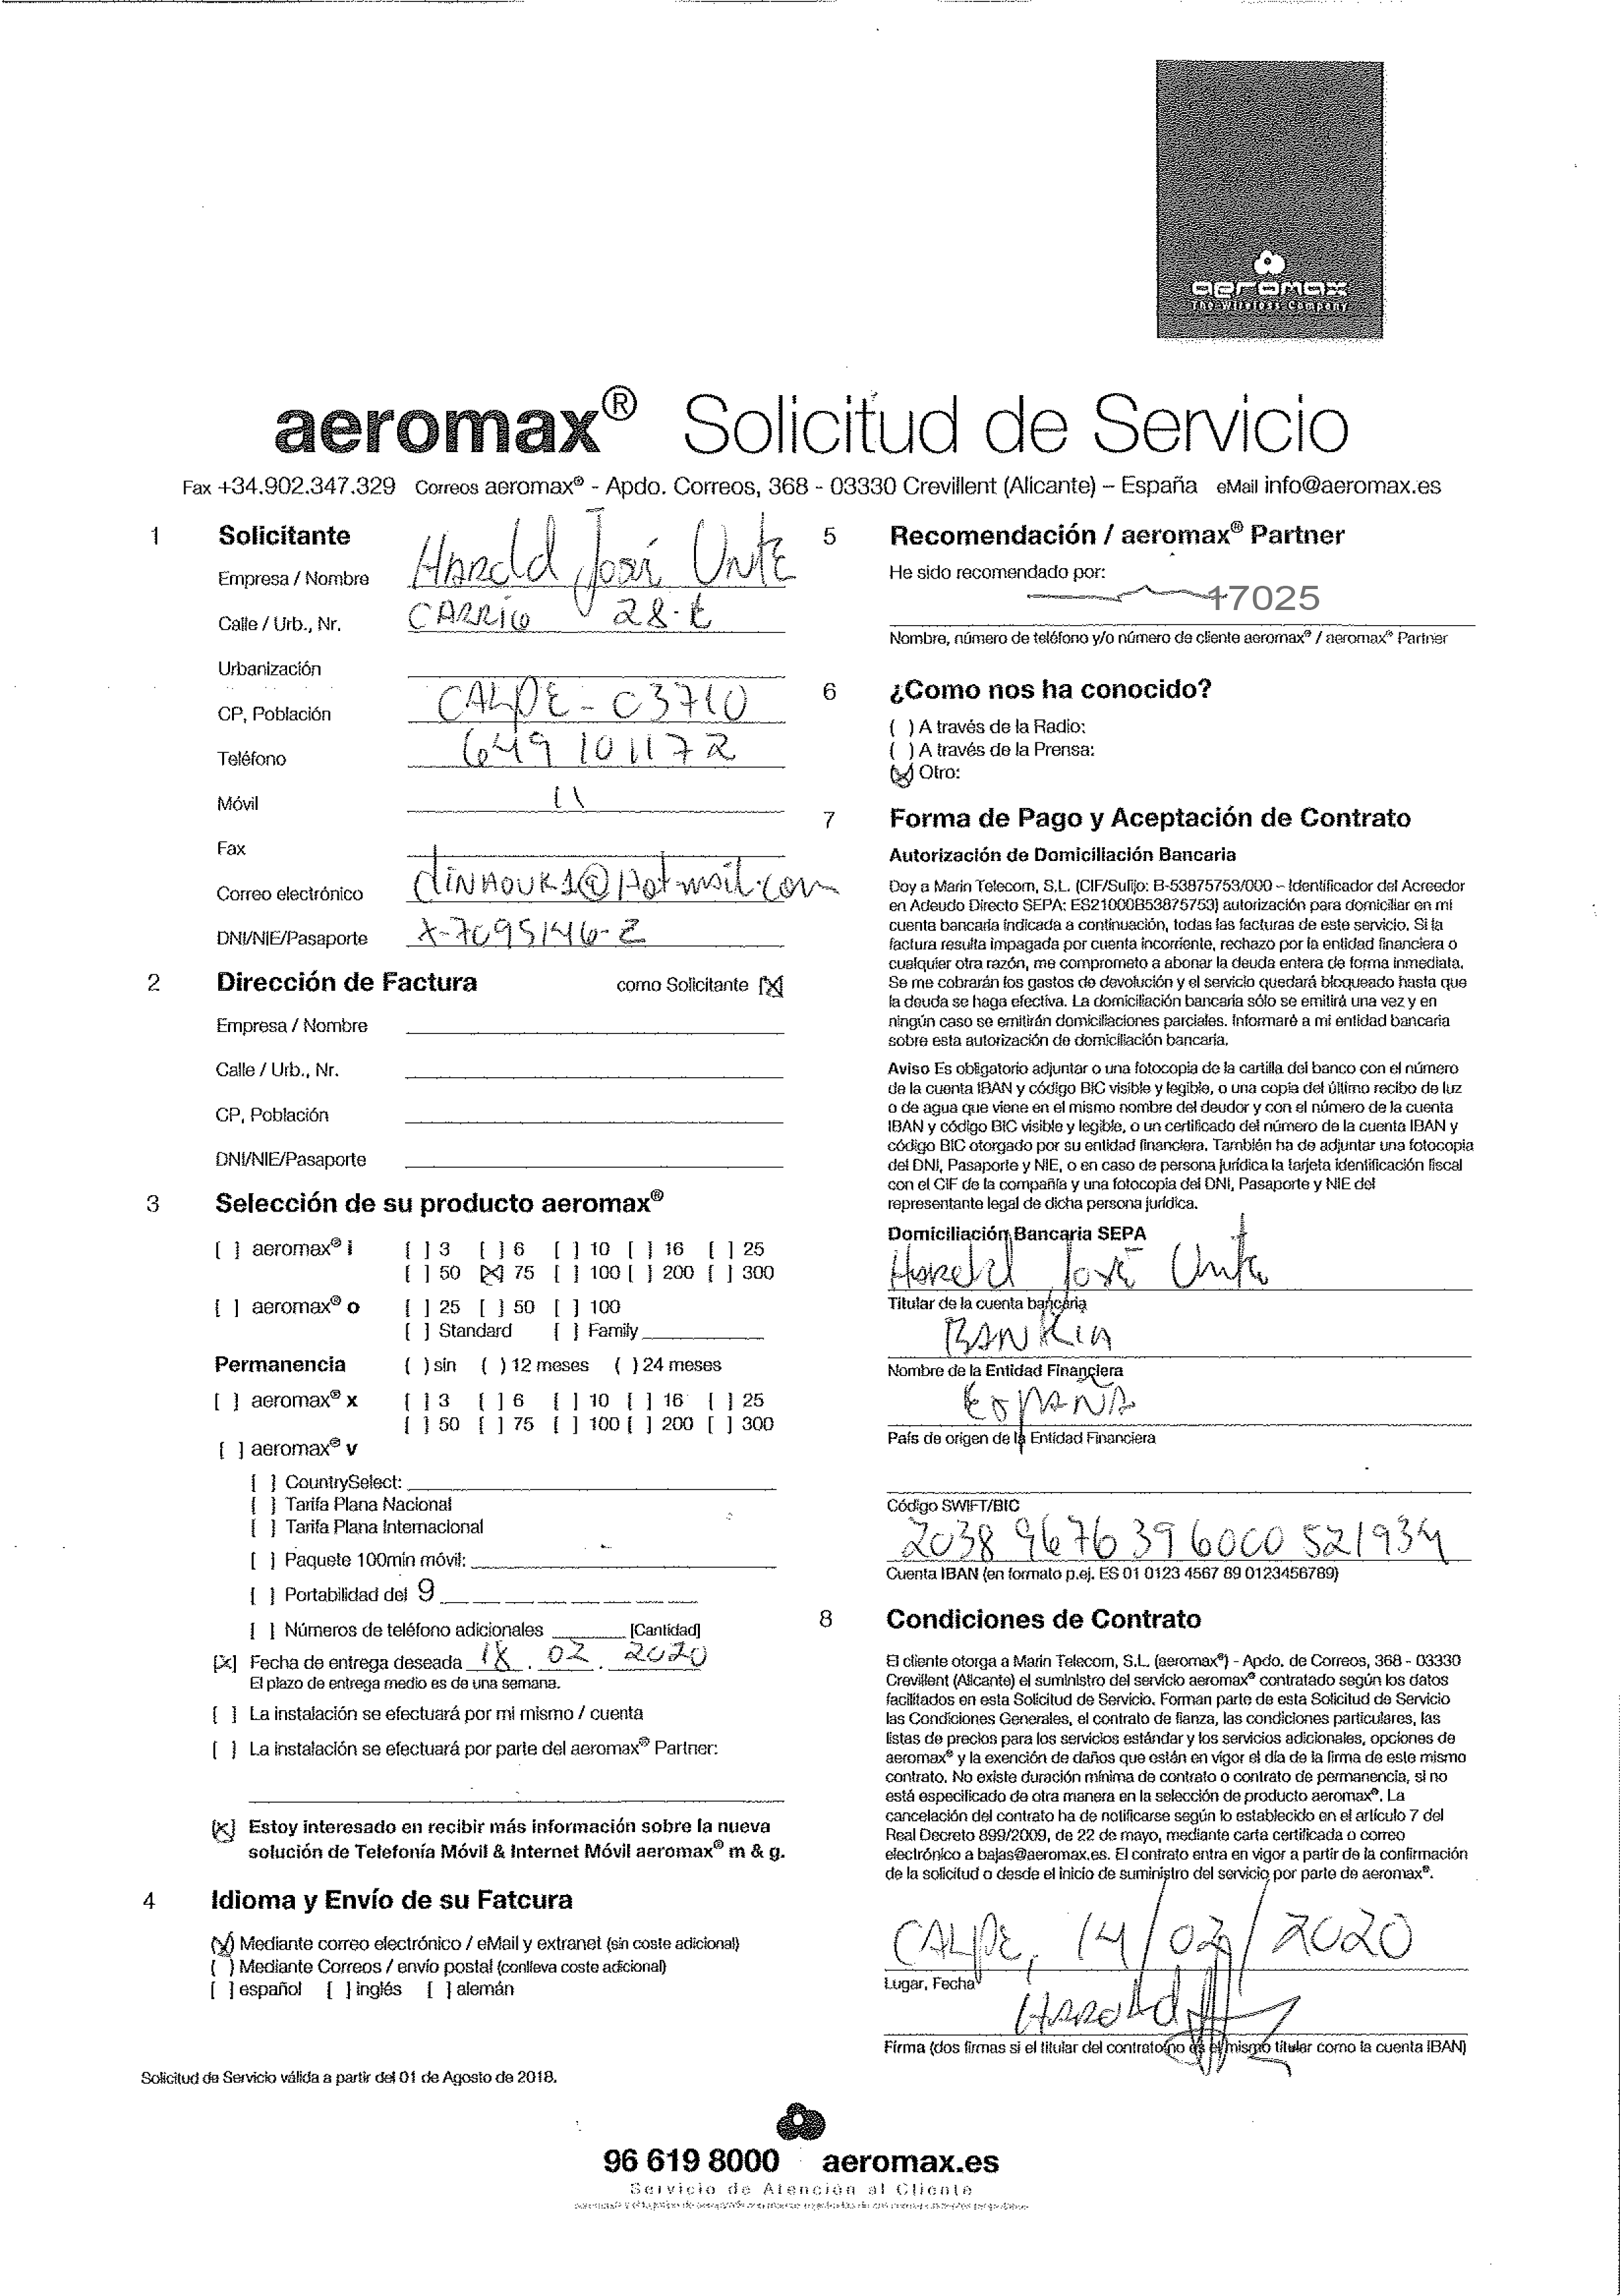 aeromax
The Wireless Company
aeromax® Solicitud de Servicio
Fax +34.902.347.329 Correos aeromax® - Apdo. Correos, 368 - 03330 Crevillent (Alicante) – España eMail info@aeromax.es
1 Solicitante
Empresa / Nombre Harold José Unte
Calle / Urb., Nr. CARRIO 28-E
Urbanización
CP, Población CALPE - 03710
Teléfono 649 101172
Móvil 11
Fax
Correo electrónico @hotmail.com
DNI/NIE/Pasaporte X-7095146-Z
2 Dirección de Factura como Solicitante [X]
Empresa / Nombre
Calle / Urb., Nr.
CP, Población
DNI/NIE/Pasaporte
3 Selección de su producto aeromax®
[ ] aeromax® i [ ] 3 [ ] 6 [ ] 10 [ ] 16 [ ] 25
[ ] 50 [X] 75 [ ] 100 [ ] 200 [ ] 300
[ ] aeromax® o [ ] 25 [ ] 50 [ ] 100
[ ] Standard [ ] Family
Permanencia ( ) sin ( ) 12 meses ( ) 24 meses
[ ] aeromax® x [ ] 3 [ ] 6 [ ] 10 [ ] 16 [ ] 25
[ ] 50 [ ] 75 [ ] 100 [ ] 200 [ ] 300
[ ] aeromax® v
[ ] CountrySelect:
[ ] Tarifa Plana Nacional
[ ] Tarifa Plana Internacional
[ ] Paquete 100min móvil:
[ ] Portabilidad del 9
[ ] Números de teléfono adicionales [Cantidad]
[X] Fecha de entrega deseada 18 . 02 . 2020
El plazo de entrega medio es de una semana.
[ ] La instalación se efectuará por mi mismo / cuenta
[ ] La instalación se efectuará por parte del aeromax® Partner:
[X] Estoy interesado en recibir más información sobre la nueva
solución de Telefonía Móvil & Internet Móvil aeromax® m & g.
4 Idioma y Envío de su Fatcura
(X) Mediante correo electrónico / eMail y extranet (sin coste adicional)
( ) Mediante Correos / envío postal (conlleva coste adicional)
[ ] español [ ] inglés [ ] alemán
Solicitud de Servicio válida a partir del 01 de Agosto de 2018.
5 Recomendación / aeromax® Partner
He sido recomendado por:
17025
Nombre, número de teléfono y/o número de cliente aeromax® / aeromax® Partner
6 ¿Como nos ha conocido?
( ) A través de la Radio:
( ) A través de la Prensa:
(X) Otro:
7 Forma de Pago y Aceptación de Contrato
Autorización de Domiciliación Bancaria
Doy a Marin Telecom, S.L. (CIF/Sufijo: B-53875753/000 – Identificador del Acreedor
en Adeudo Directo SEPA: ES21000B53875753) autorización para domiciliar en mi
cuenta bancaria indicada a continuación, todas las facturas de este servicio. Si la
factura resulta impagada por cuenta incorriente, rechazo por la entidad financiera o
cualquier otra razón, me comprometo a abonar la deuda entera de forma inmediata.
Se me cobrarán los gastos de devolución y el servicio quedará bloqueado hasta que
la deuda se haga efectiva. La domiciliación bancaria sólo se emitirá una vez y en
ningún caso se emitirán domiciliaciones parciales. Informaré a mi entidad bancaria
sobre esta autorización de domiciliación bancaria.
Aviso Es obligatorio adjuntar o una fotocopia de la cartilla del banco con el número
de la cuenta IBAN y código BIC visible y legible, o una copia del último recibo de luz
o de agua que viene en el mismo nombre del deudor y con el número de la cuenta
IBAN y código BIC visible y legible, o un certificado del número de la cuenta IBAN y
código BIC otorgado por su entidad financiera. También ha de adjuntar una fotocopia
del DNI, Pasaporte y NIE, o en caso de persona jurídica la tarjeta identificación fiscal
con el CIF de la compañía y una fotocopia del DNI, Pasaporte y NIE del
representante legal de dicha persona jurídica.
Domiciliación Bancaria SEPA
Harold José Unte
Titular de la cuenta bancaria
BANKIA
Nombre de la Entidad Financiera
ESPAÑA
País de origen de la Entidad Financiera
Código SWIFT/BIC
2038 9676 39 6000 521934
Cuenta IBAN (en formato p.ej. ES 01 0123 4567 89 0123456789)
8 Condiciones de Contrato
El cliente otorga a Marin Telecom, S.L. (aeromax®) - Apdo. de Correos, 368 - 03330
Crevillent (Alicante) el suministro del servicio aeromax® contratado según los datos
facilitados en esta Solicitud de Servicio. Forman parte de esta Solicitud de Servicio
las Condiciones Generales, el contrato de fianza, las condiciones particulares, las
listas de precios para los servicios estándar y los servicios adicionales, opciones de
aeromax® y la exención de daños que están en vigor el día de la firma de este mismo
contrato. No existe duración mínima de contrato o contrato de permanencia, si no
está especificado de otra manera en la selección de producto aeromax®. La
cancelación del contrato ha de notificarse según lo establecido en el artículo 7 del
Real Decreto 899/2009, de 22 de mayo, mediante carta certificada o correo
electrónico a bajas@aeromax.es. El contrato entra en vigor a partir de la confirmación
de la solicitud o desde el inicio de suministro del servicio por parte de aeromax®.
CALPE, 14/02/2020
Lugar, Fecha
Harold
Firma (dos firmas si el titular del contrato no es el mismo titular como la cuenta IBAN)
96 619 8000 aeromax.es
Servicio de Atención al Cliente